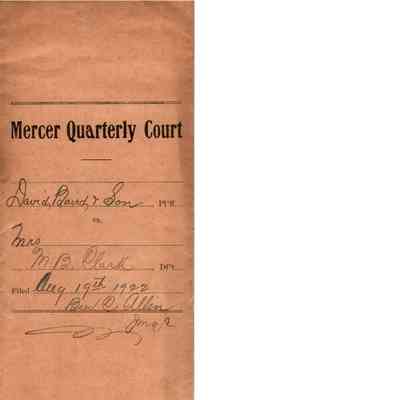 Mercer Quarterly Court
David, Baird, & Son Pl'ff.
vs.
Mrs
M. B. Clark Df't.
Filed Aug 19th 1922
Ben C. Allin